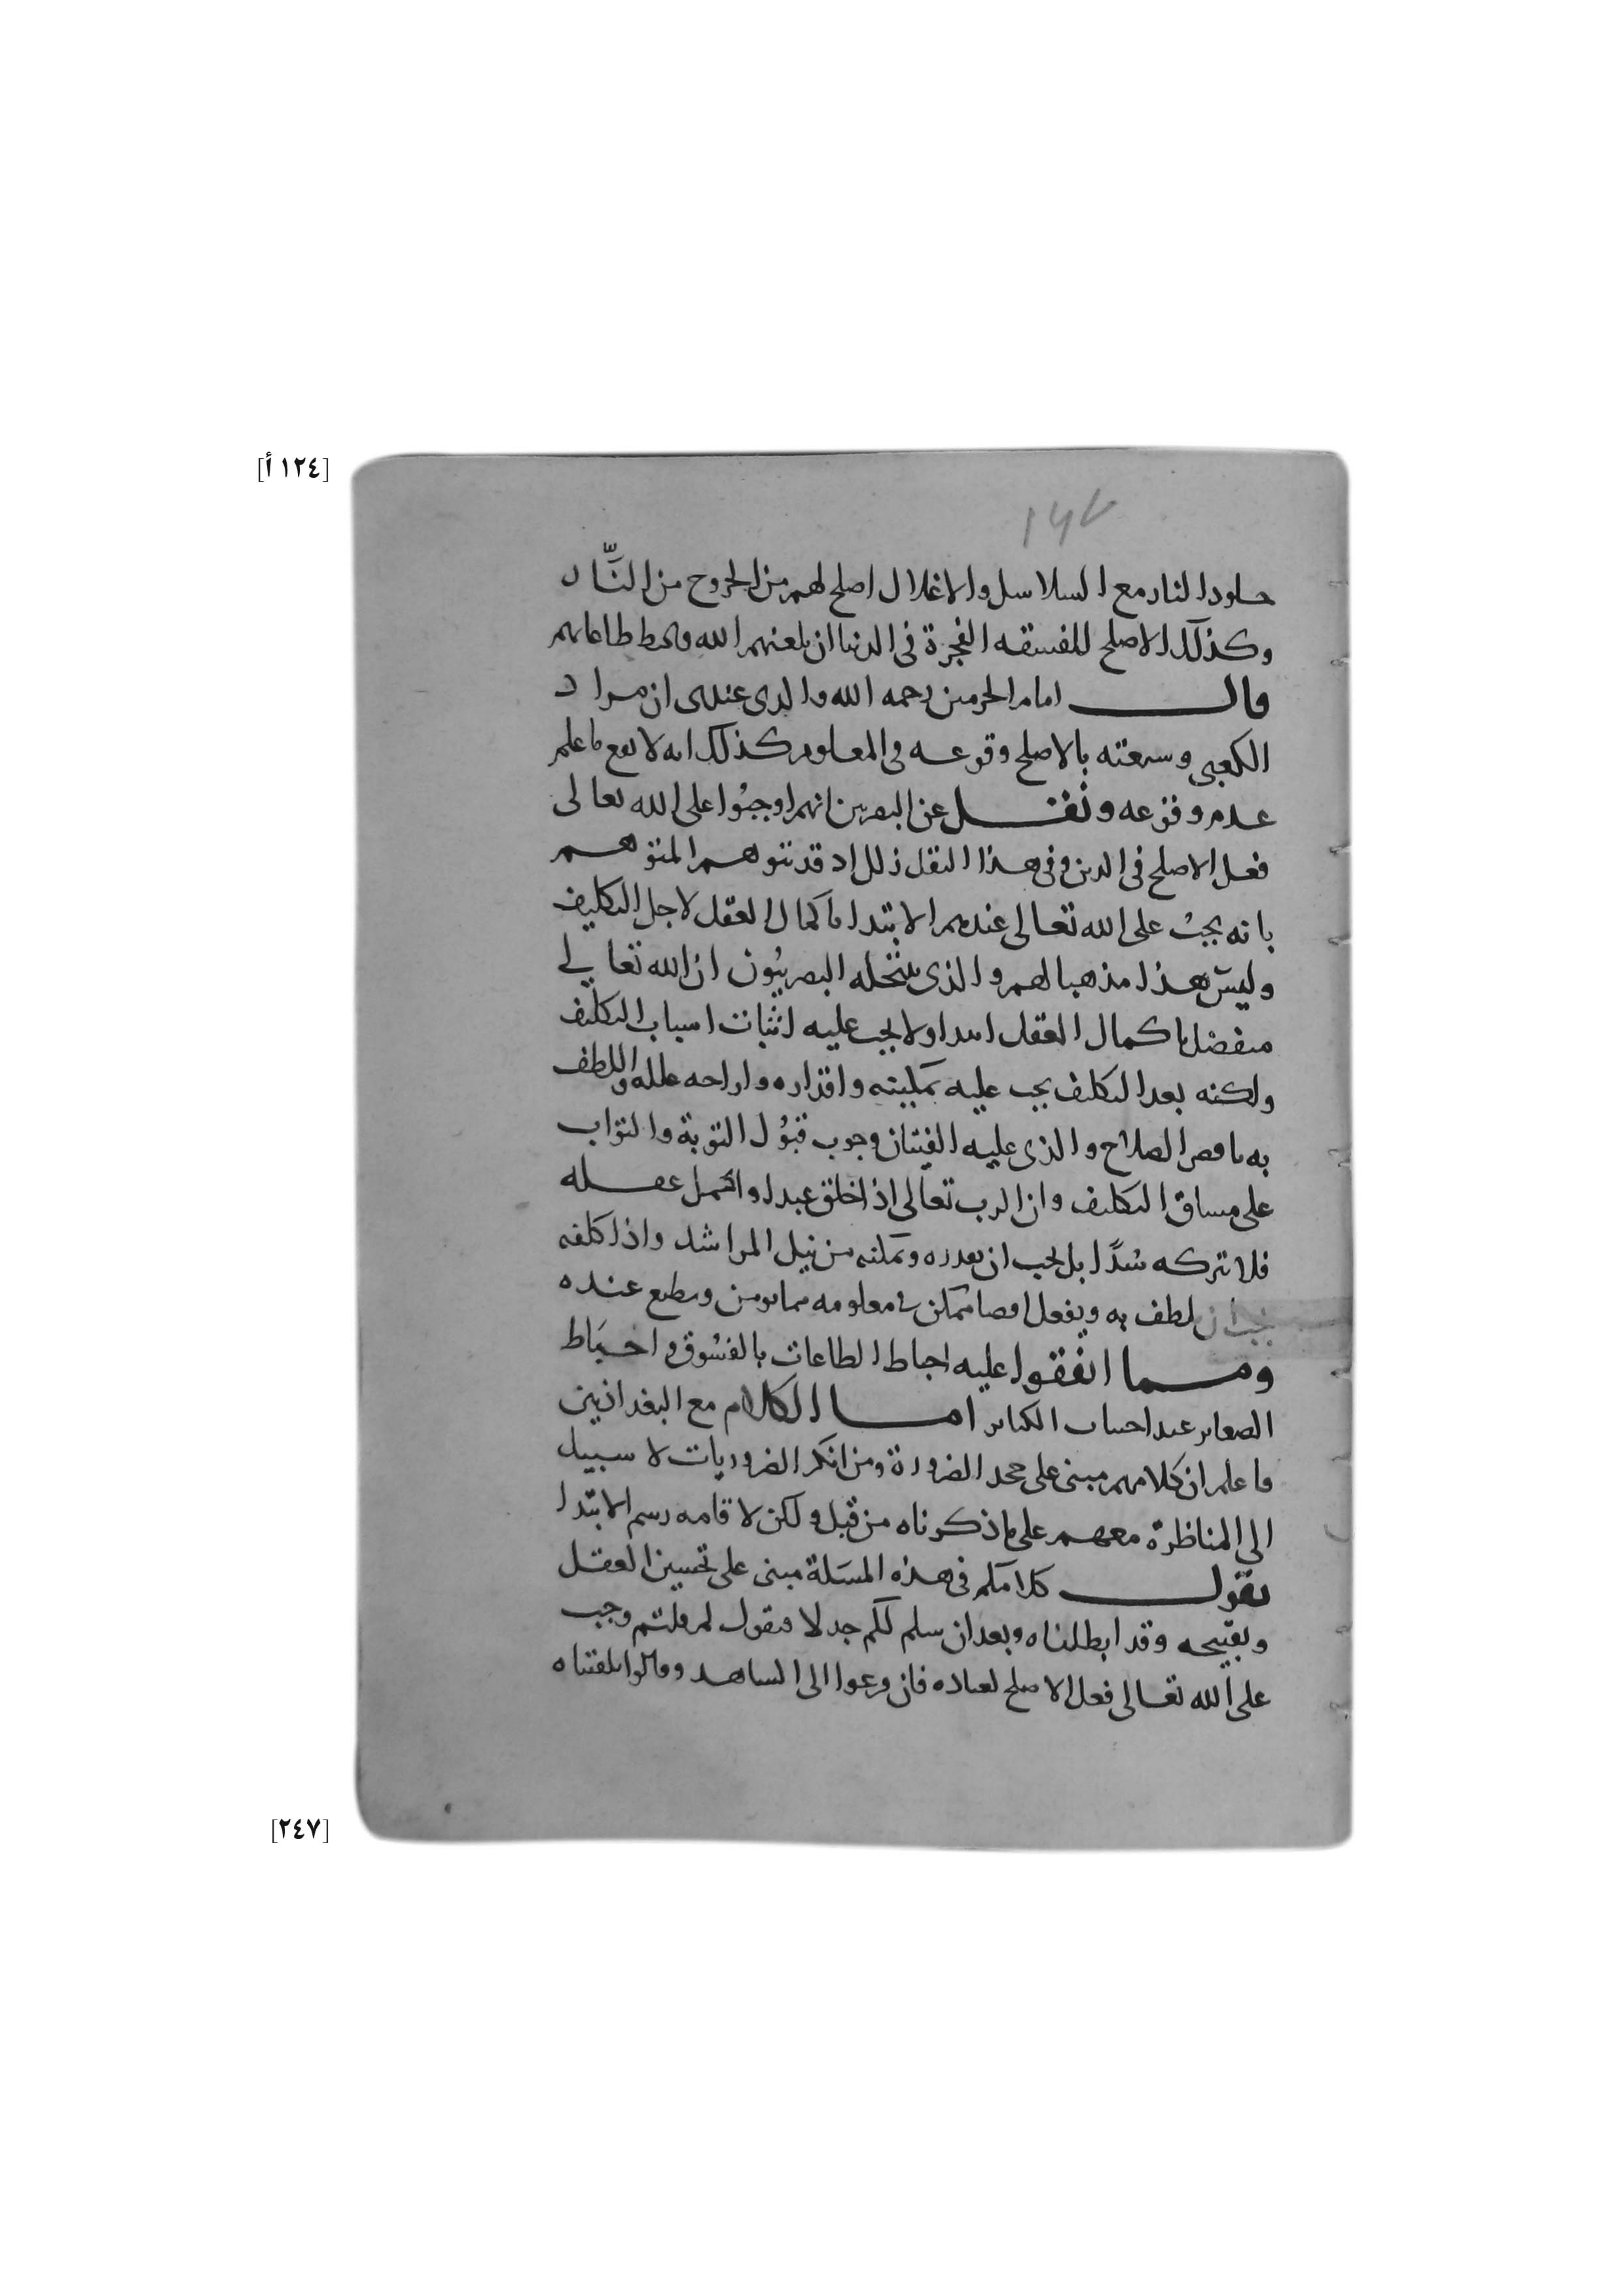 [١٢٤ أ]
١٤٧
خلود النار مع السلاسل والاغلال اصلح لهم من الخروج من النَّار
وكذلك الاصلح للفسقه الفجرة فى الدنيا ان يلعنهم الله ويحبط طاعاتهم
قال امام الحرمين رحمه الله والذى عندى ان مراد
الكعبى وشيعته بالاصلح وقوعه فى المعلوم كذلك انه لا يقع ما علم
عدم وقوعه ونقل عن البصريين انهم اوجبوا على الله تعالى
فعل الاصلح فى الدين وفى هذا النقل زلل اد قد يتوهم المتوهم
بانه يجب على الله تعالى عندهم الابتدا باكمال العقل لاجل التكليف
وليس هذا مذهبا لهم والذى ينتحله البصريُّون ان الله تعالى
متفضل باكمال العقل ابتدا ولا يجب عليه اثبات اسباب التكليف
ولكنه بعد التكليف يجب عليه تمكينه واقداره وازاحه علله واللطف
به باقصى الصلاح والذى عليه الفيتان وجوب قبُول التوبة والثواب
على مساق التكليف وان الرب تعالى اذا خلق عبدا واكمل عقله
فلا تتركه سُدًا بل يجب ان يقدره ويمكنه من نيل المراشد واذا كلفه
يجب ان يلطف به ويفعل اقصا ممكن فى معلومه مما يومن ويطيع عنده
ومما اتفقوا عليه احباط الطاعات بالفسُوق واحبَاط
الصغاير عند اجتناب الكباير امـا الكلام مع البغداذيين
فاعلم ان كلامهم مبنى على جحد الضرورة ومن انكر الضروريات لا سبيل
الى المناظرة معهم على ما ذكرناه من قبل ولكن لاقامه رسم الابتدا
نقول كلامكم فى هذه المسَلة مبنى على تحسين العقل
وتقبيحه وقد ابطلناه وبعد ان سلم لكم جدلا فنقول لم قلتم وجب
على الله تعالى فعل الاصلح لعباده فان فزعوا الى الشاهد وقالوا تلقيناه
[٢٤٧]